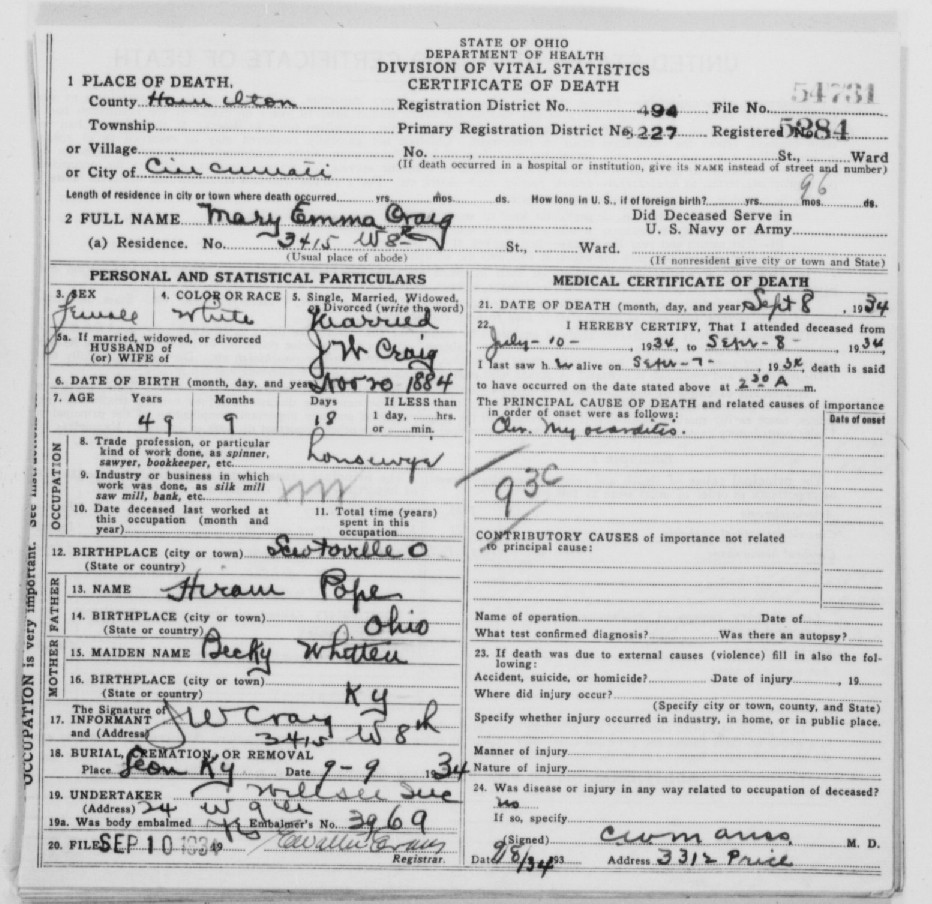 STATE OF OHIO
DEPARTMENT OF HEALTH
DIVISION OF VITAL STATISTICS
CERTIFICATE OF DEATH
1 PLACE OF DEATH.
County Hamilton Registration District No. 494 File No. 54731
Township Primary Registration District No. 8227 Registered No. 5284
or Village No. , St., Ward
or City of Cincinnati (If death occurred in a hospital or institution, give its NAME instead of street and number)
96
Length of residence in city or town where death occurred yrs. mos. ds. How long in U. S., if of foreign birth? yrs. mos. ds.
2 FULL NAME Mary Emma Craig Did Deceased Serve in
U. S. Navy or Army
(a) Residence. No. 3415 W 8th St., Ward.
(Usual place of abode) (If nonresident give city or town and State)
PERSONAL AND STATISTICAL PARTICULARS
3. SEX 4. COLOR OR RACE 5. Single, Married, Widowed, or Divorced (write the word)
Female White Married
5a. If married, widowed, or divorced
HUSBAND of
(or) WIFE of J W Craig
6. DATE OF BIRTH (month, day, and year) Nov 20 1884
7. AGE Years Months Days If LESS than
1 day, hrs.
49 9 18 or min.
OCCUPATION
8. Trade profession, or particular
kind of work done, as spinner,
sawyer, bookkeeper, etc. housewife
9. Industry or business in which
work was done, as silk mill
saw mill, bank, etc.
10. Date deceased last worked at
this occupation (month and
year)
11. Total time (years)
spent in this
occupation
12. BIRTHPLACE (city or town) O
(State or country)
FATHER
13. NAME Hiram Pope
14. BIRTHPLACE (city or town)
(State or country) Ohio
MOTHER
15. MAIDEN NAME Becky Whitten
16. BIRTHPLACE (city or town)
(State or country) Ky
17. The Signature of
INFORMANT J W Craig
and (Address) 3415 W 8th
18. BURIAL, CREMATION, OR REMOVAL
Place Leon Ky Date 9-9 1934
19. UNDERTAKER Inc
(Address) 24 W 9th
19a. Was body embalmed Yes Embalmer's No. 3969
20. FILED SEP 10 1934 19
Registrar.
OCCUPATION is very important. See instructions on
MEDICAL CERTIFICATE OF DEATH
21. DATE OF DEATH (month, day, and year) Sept 8, 1934
22. I HEREBY CERTIFY, That I attended deceased from
July-10-, 1934, to Sept-8-, 1934,
I last saw h er alive on Sept-7-, 1934, death is said
to have occurred on the date stated above at 2 30 A m.
The PRINCIPAL CAUSE OF DEATH and related causes of importance
in order of onset were as follows: Date of onset
Chr. Myocarditis.
93c
CONTRIBUTORY CAUSES of importance not related
to principal cause:
Name of operation Date of
What test confirmed diagnosis? Was there an autopsy?
23. If death was due to external causes (violence) fill in also the fol-
lowing:
Accident, suicide, or homicide? Date of injury , 19
Where did injury occur?
(Specify city or town, county, and State)
Specify whether injury occurred in industry, in home, or in public place.
Manner of injury
Nature of injury
24. Was disease or injury in any way related to occupation of deceased?
no
If so, specify
(Signed) M. D.
Date 9/8/34 193 Address 3312 Price